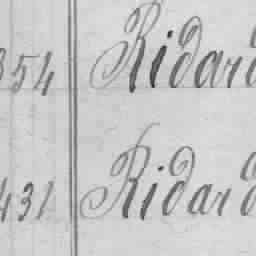 354 Ridard
431 Ridard